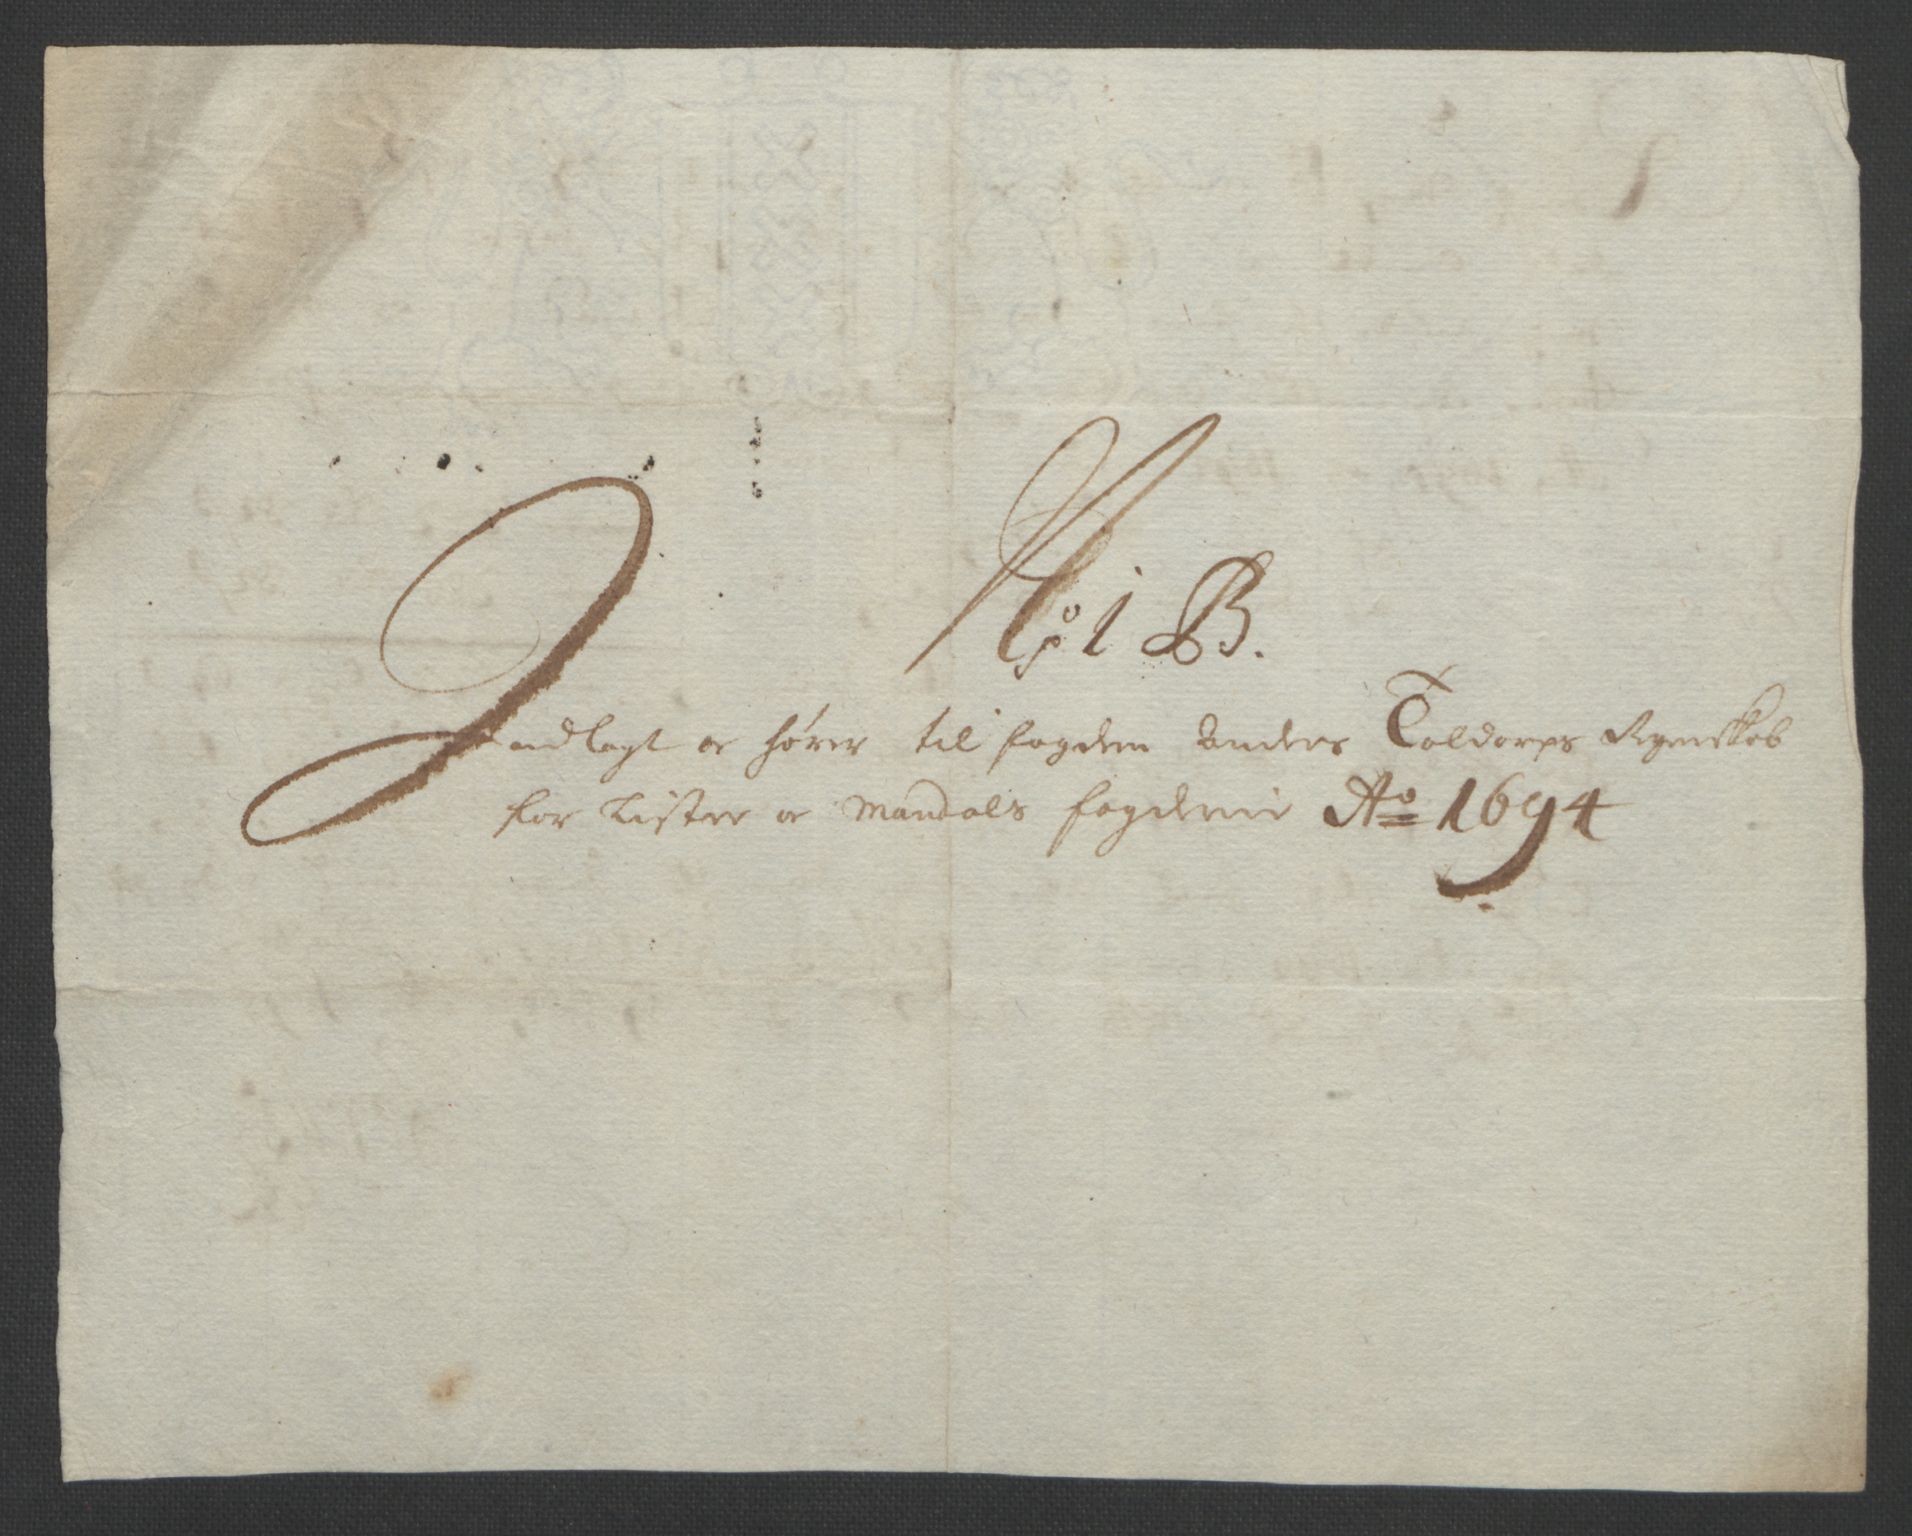 No: 1 B.
Indlagt oc hører til fogden Anders Toldorps Regenskab
for Lister oc Mandals fogderie Ao 1694